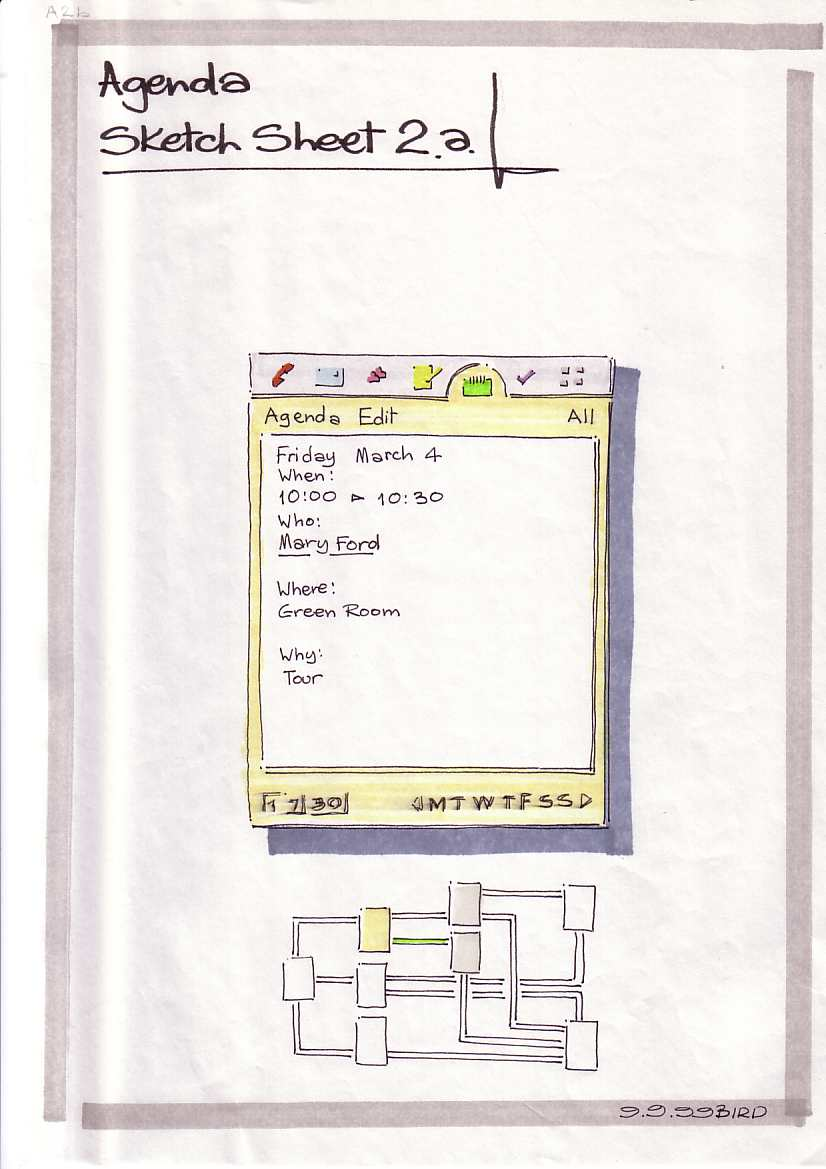 A2b
Agenda
Sketch Sheet 2.a.
Agenda Edit All
Friday March 4
When:
10:00 ▻ 10:30
Who:
Mary Ford
Where:
Green Room
Why:
Tour
1 7 30 ◁ M T W T F S S ▷
9.9.99 BIRD